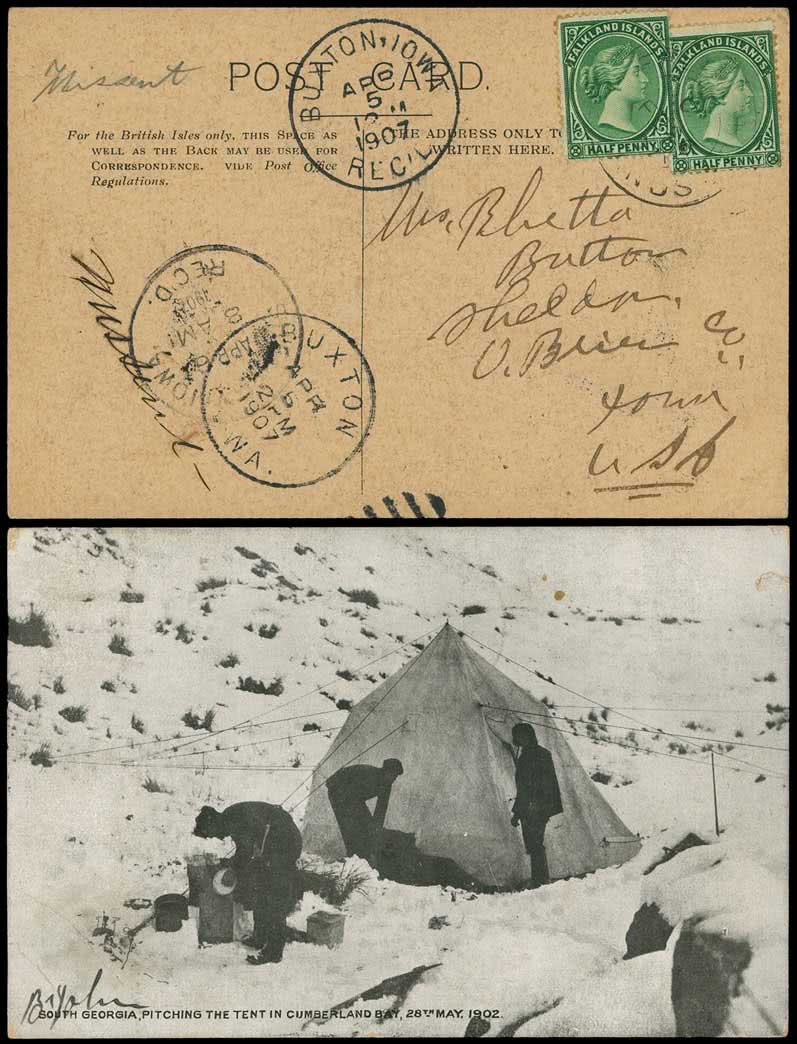 Missent
POST CARD.
BUXTON, IOWA
APR
5
1907
REC'D.
FALKLAND ISLANDS
HALFPENNY
FALKLAND ISLANDS
HALFPENNY
For the British Isles only, THIS SPACE AS
WELL AS THE BACK MAY BE USED FOR
CORRESPONDENCE. VIDE Post Office
Regulations.
THE ADDRESS ONLY TO
WRITTEN HERE.
Mrs. Rhetta
Button
Sheldon.
O. Brien Co.
Iowa
USA
REC'D.
8
AM
APR 6
IOWA
BUXTON
APR
5
2 PM
1907
WA.
SOUTH GEORGIA, PITCHING THE TENT IN CUMBERLAND BAY, 28TH MAY, 1902.